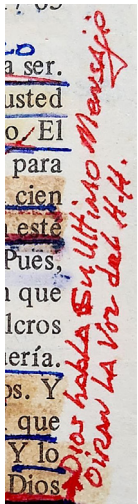 ser.
usted
o. El
para
cien
este
Pues,
que
lcros
ería.
os. Y
que
Y lo
Dios
Dios habla Su Ultimo Mensaje
Oiran La Voz del H.H.